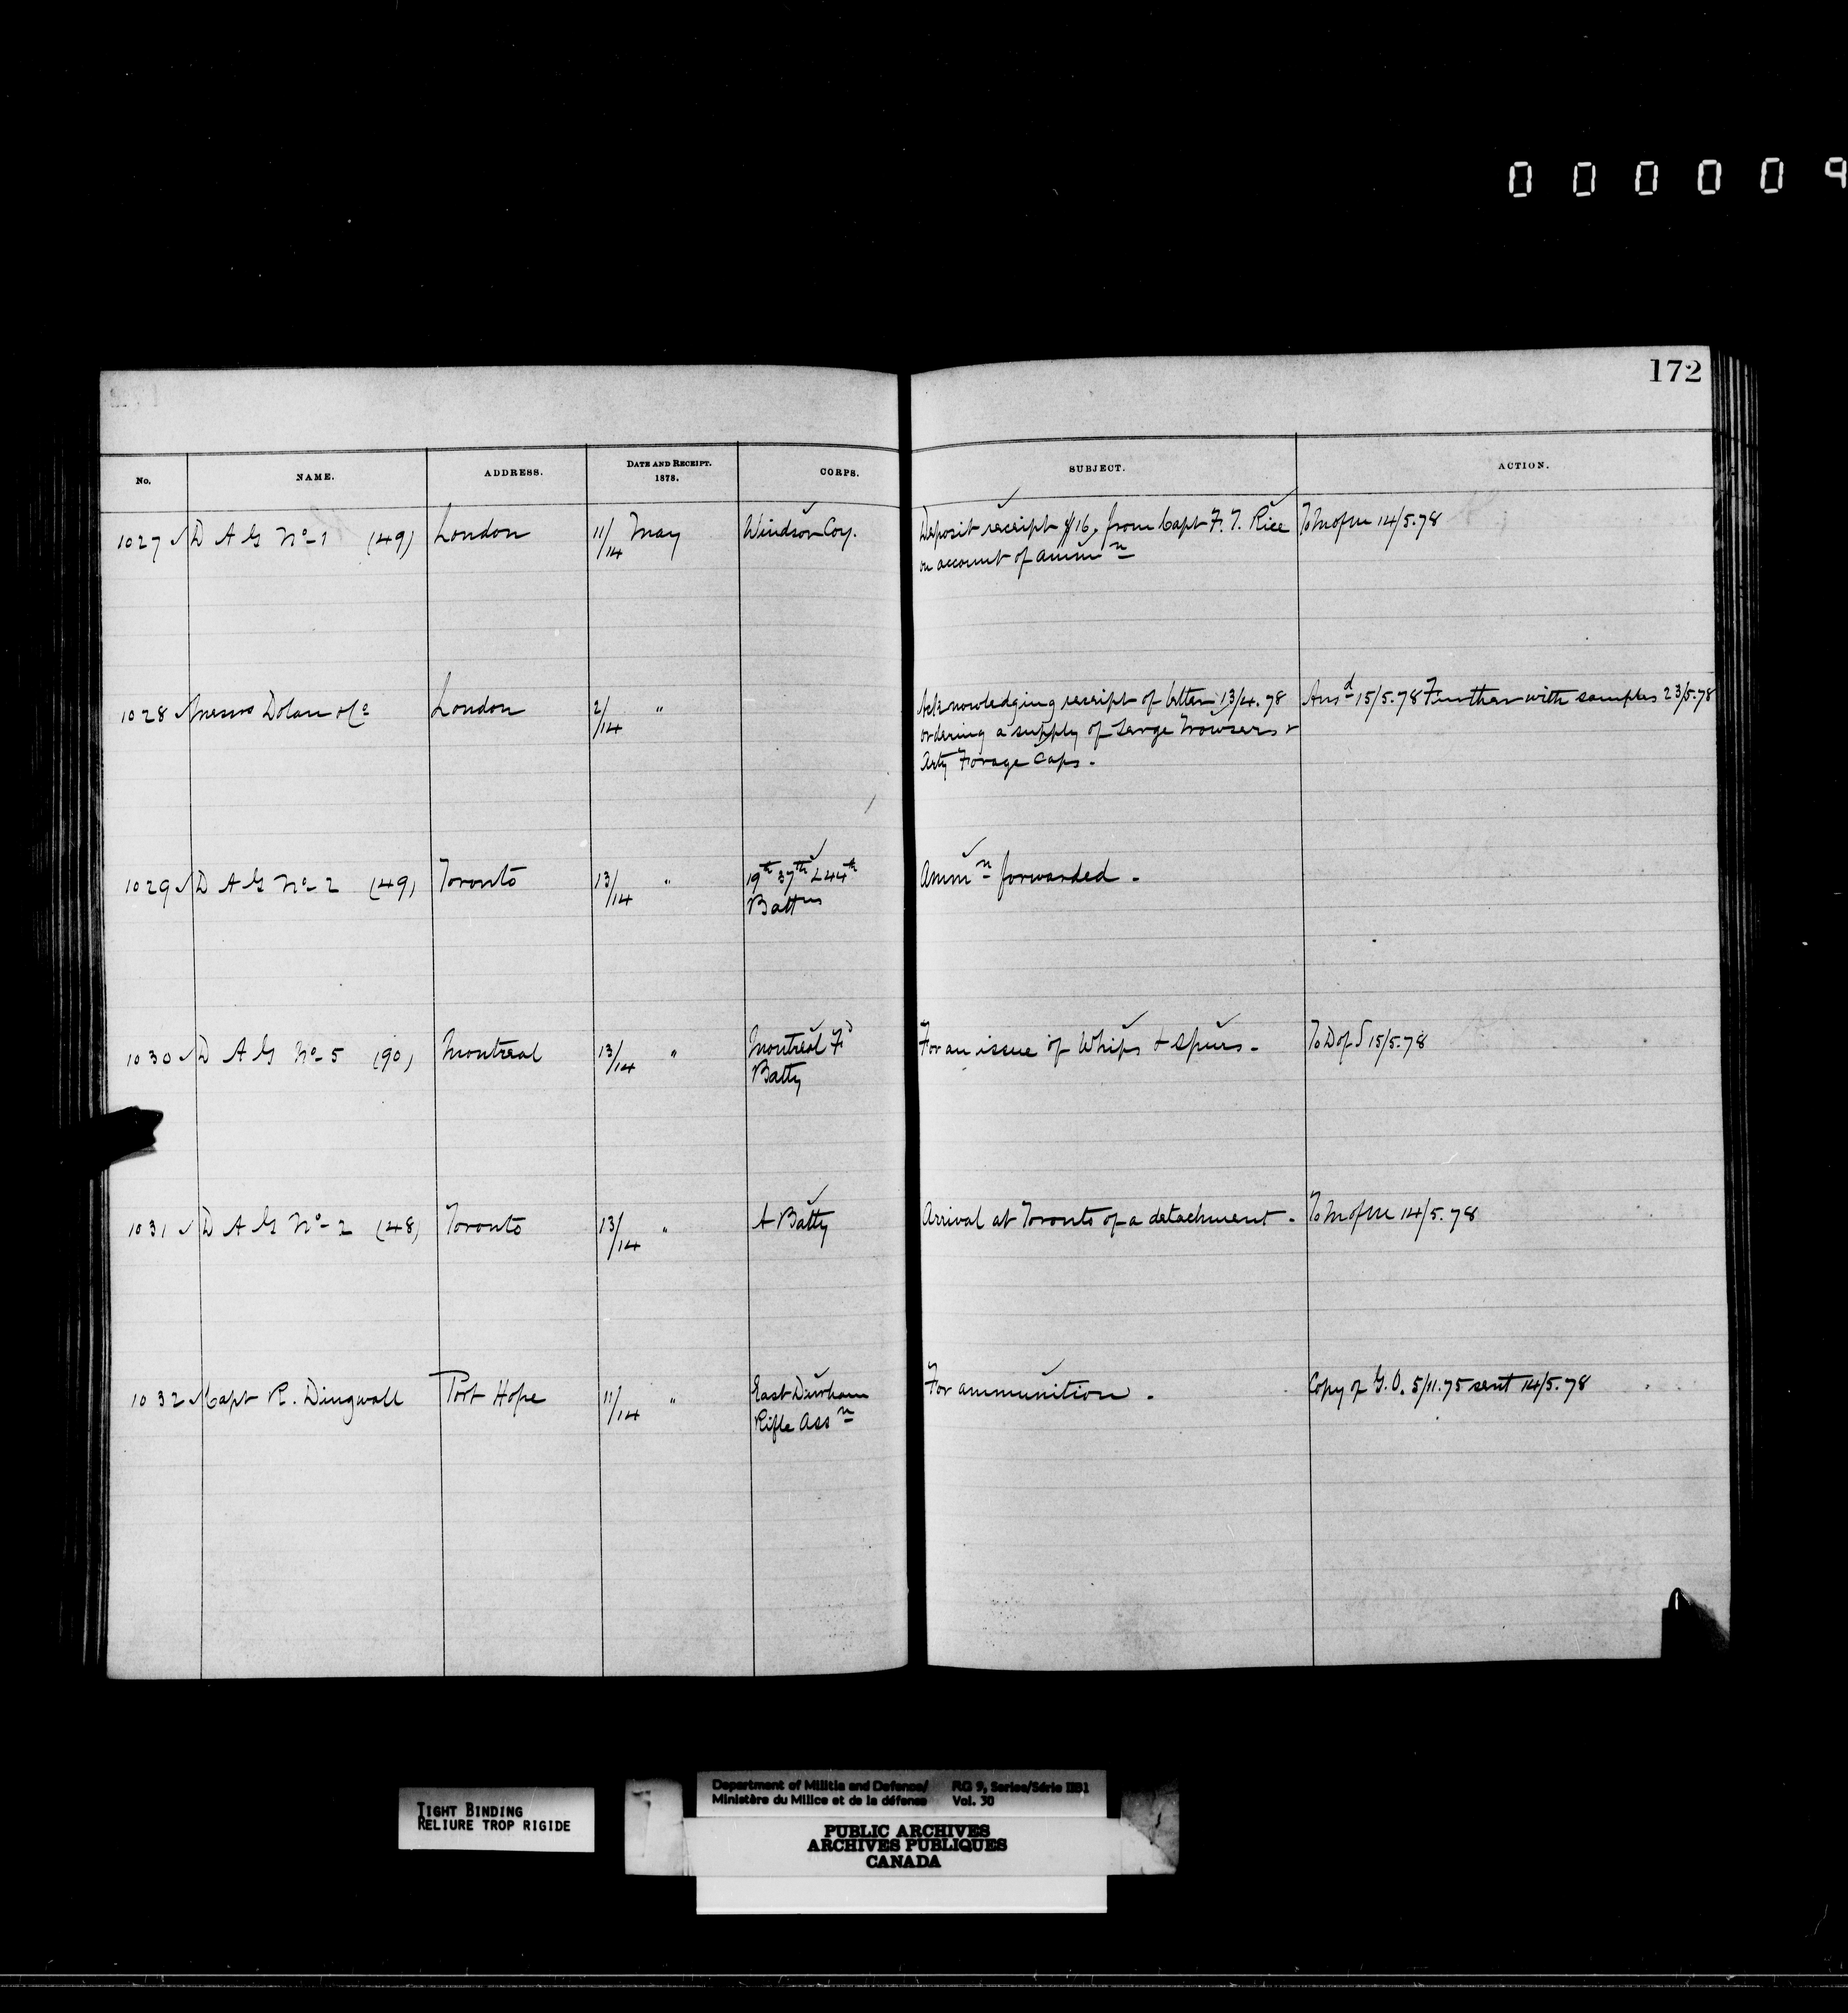 000009
172
No. NAME. ADDRESS. DATE AND RECEIPT. 1878. CORPS. SUBJECT. ACTION.
1027 D A G No 1 (49) London 11/14 May Windsor Coy. Deposit receipt $16, from Capt F. T. Rice To M of M 14/5.78
on account of ammn
1028 Messrs Dolan & Co London 2/14 " Acknowledging receipt of letter 13/4.78 Ansd 15/5.78 Further with samples 23/5.78
ordering a supply of Serge Trowsers &
Arty Forage Caps.
1029 D A G No 2 (49) Toronto 13/14 " 19th 37th & 44th Ammn forwarded.
Battns
1030 D A G No 5 (90) Montreal 13/14 " Montreal Fd For an issue of Whips & Spurs. To D of S 15/5.78
Batty
1031 D A G No 2 (48) Toronto 13/14 " A Batty Arrival at Toronto of a detachment. To M of M 14/5.78
1032 Capt R. Dingwall Port Hope 11/14 " East Durham For ammunition. Copy of G.O. 5/11.75 sent 14/5.78
Rifle Assn
TIGHT BINDING
RELIURE TROP RIGIDE
Department of Militia and Defence/ RG 9, Series/Série IIB1
Ministère du Milice et de la défense Vol. 30
PUBLIC ARCHIVES
ARCHIVES PUBLIQUES
CANADA